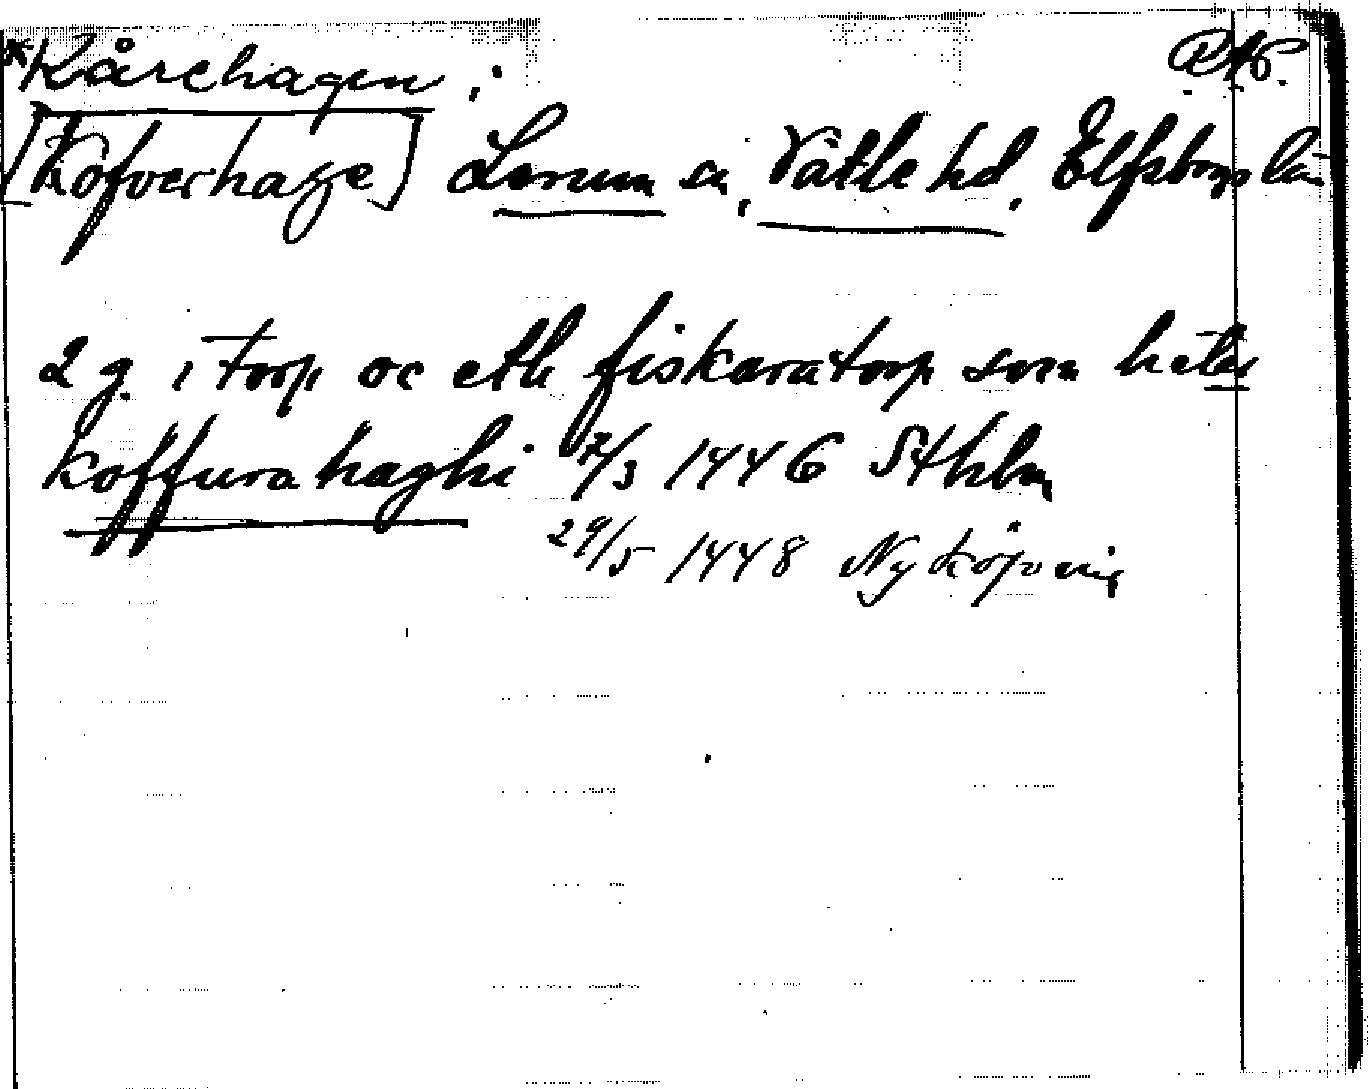 *Kårehagen ; RAp.
[Kofverhage] Lerum sn, Vättle hd. Elfsborgs län
2 g. i torp oc eth fiskaratorp som heter
koffura haghi 17/3 1446 Sthlm
29/5 1448 Nyköping